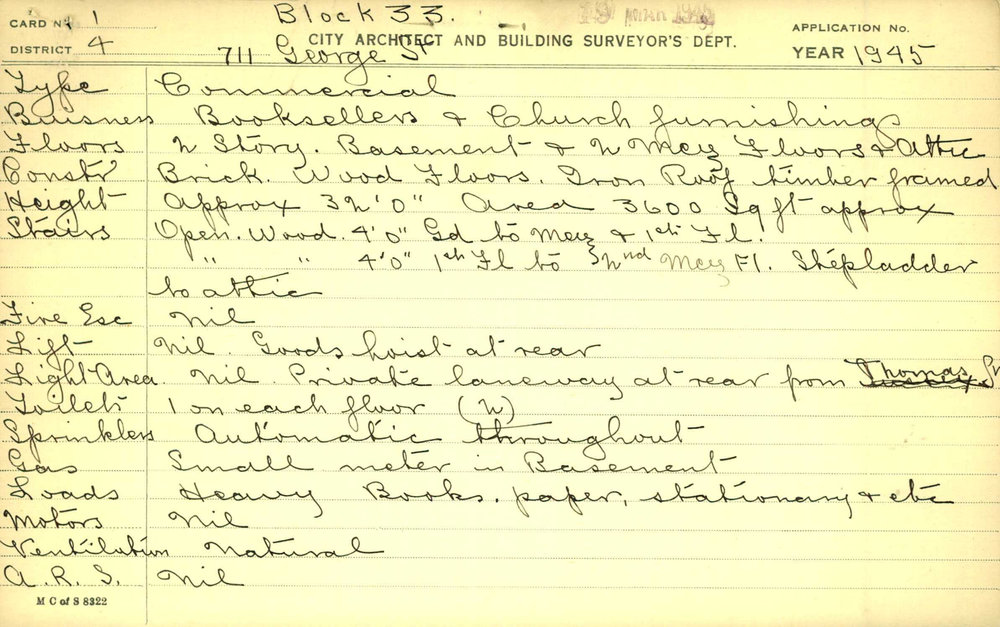 CARD No. 1 Block 33.
DISTRICT 4 CITY ARCHITECT AND BUILDING SURVEYOR'S DEPT. APPLICATION No.
711 George St YEAR 1945
Type Commercial
Buisness Booksellers & Church furnishings
Floors 2 Story. Basement & 2 Mezz Floors & Attic
Constr' Brick. Wood Floors. Iron Roof timber framed
Height Approx 32'0" Area 3600 Sq ft approx
Stairs Open. Wood. 4'0" Gd to Mezz & 1st Fl.
" " 4'0" 1st Fl to 2nd Mezz Fl. Stepladder
to attic
Fire Esc Nil
Lift Nil. Goods hoist at rear
Light Area Nil. Private laneway at rear from Thomas St
Toilets 1 on each floor (2)
Sprinklers Automatic throughout
Gas Small meter in Basement
Loads Heavy Books. paper, stationary & etc
Motors Nil
Ventilation Natural
A.R.S. Nil
M C of S 8322